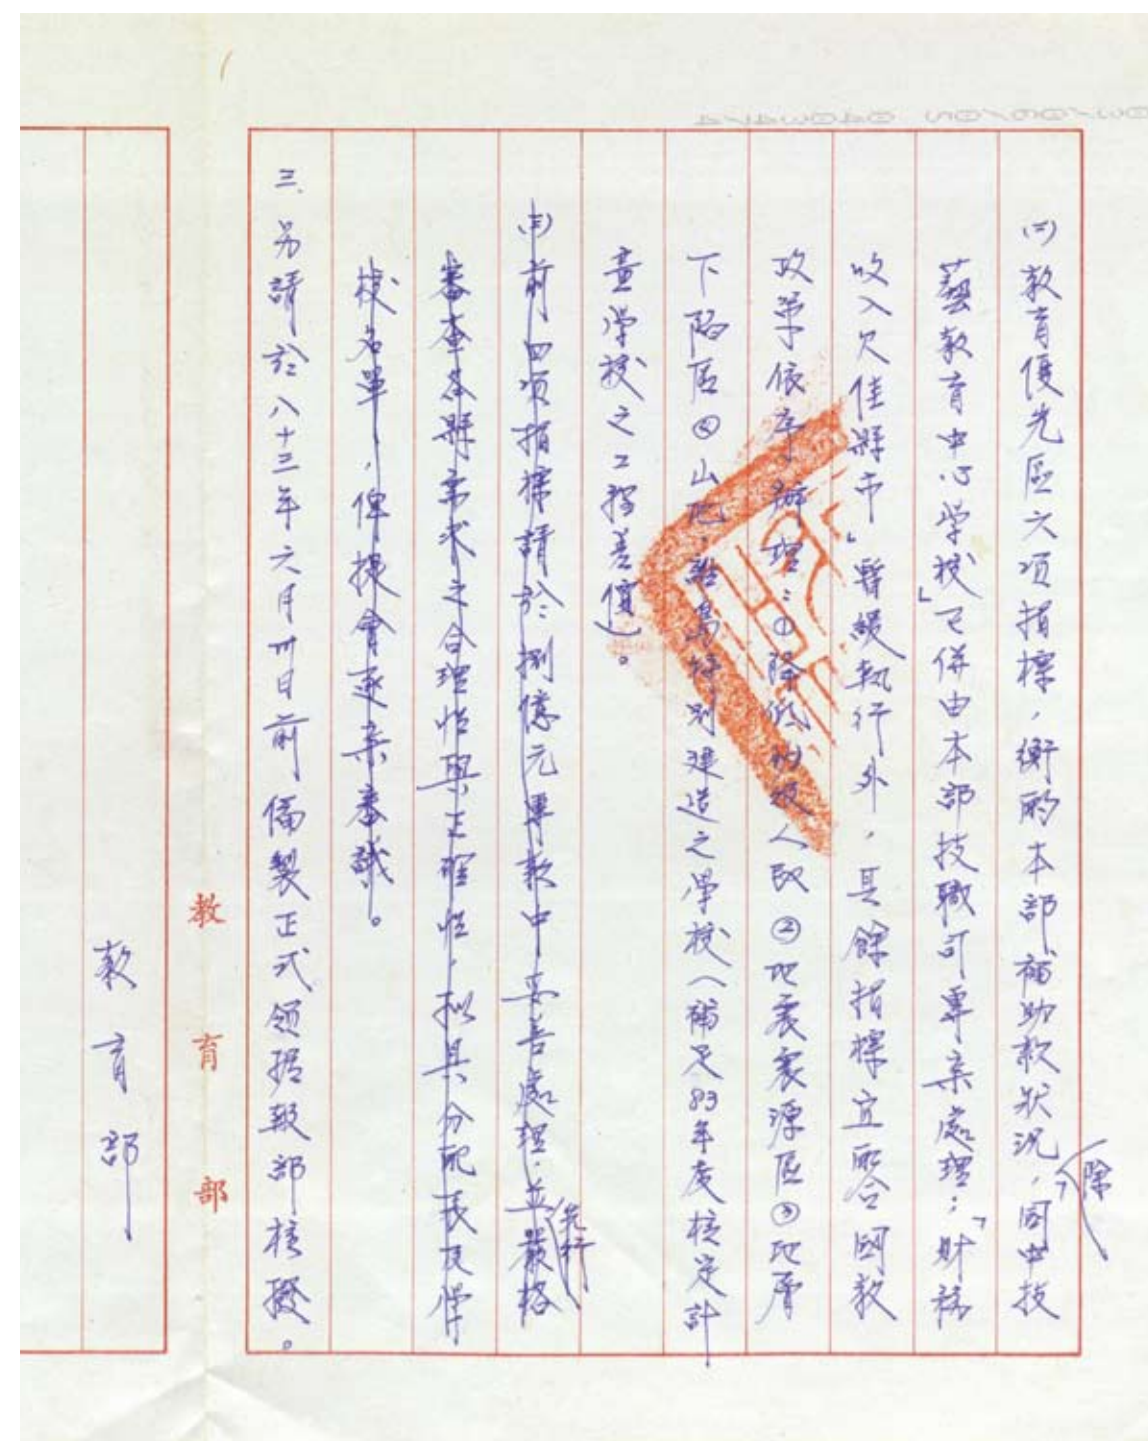 (二)教育優先區六項指標，衡酌本部補助款狀況，除「國中技
藝教育中心學校」已併由本部技職司專案處理；「財務
收入欠佳縣市」暫緩執行外，其餘指標宜配合國教
政策依序辦理：①降低班級人數②地震震源區③地層
下陷區④山地、離島特別建造之學校(補足83年度核定計
畫學校之工程差價)。
(三)前四項指標請於捌億元專款中妥善處理，並先行嚴格
審查各縣需求之合理性與正確性，擬具分配表及學
校名單，俾提會逐案審議。
三、另請於八十三年六月卅日前備製正式領據報部核撥。
教育部
教育部